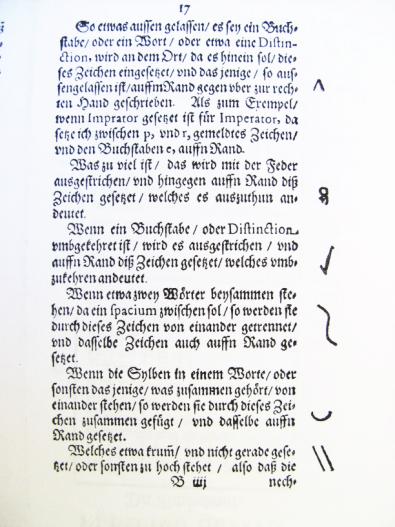 17
So etwas aussen gelassen/ es sey ein Buch-
stabe/ oder ein Wort/ oder etwa eine Distin-
ction, wird an dem Ort/ da es hinein sol/ die-
ses Zeichen eingesetzet/ vnd das jenige/ so aus-
sengelassen ist/ auffm Rand gegen vber zur rech-
ten Hand geschrieben. Als zum Exempel/
wenn Imprator gesetzet ist für Imperator, da
setze ich zwischen p, vnd r, gemeldtes Zeichen/
vnd den Buchstaben e, auffn Rand.
Was zu viel ist/ das wird mit der Feder
ausgestrichen/ vnd hingegen auffn Rand diß
Zeichen gesetzet/ welches es auszuthun an-
deutet.
Wenn ein Buchstabe/ oder Distinction
vmbgekehret ist/ wird es ausgestrichen/ vnd
auffn Rand diß Zeichen gesetzet/ welches vmb-
zukehren andeutet.
Wenn etwa zwey Wörter beysammen ste-
hen/ da ein spacium zwischen sol/ so werden sie
durch dieses Zeichen von einander getrennet/
vnd dasselbe Zeichen auch auffn Rand ge-
setzet.
Wenn die Sylben in einem Worte/ oder
sonsten das jenige/ was zusammen gehört/ von
einander stehen/ so werden sie durch dieses Zei-
chen zusammen gefügt/ vnd dasselbe auffn
Rand gesetzet.
Welches etwa krum̃/ vnd nicht gerade gese-
tzet/ oder sonsten zu hoch stehet/ also daß die
B iiij nech-